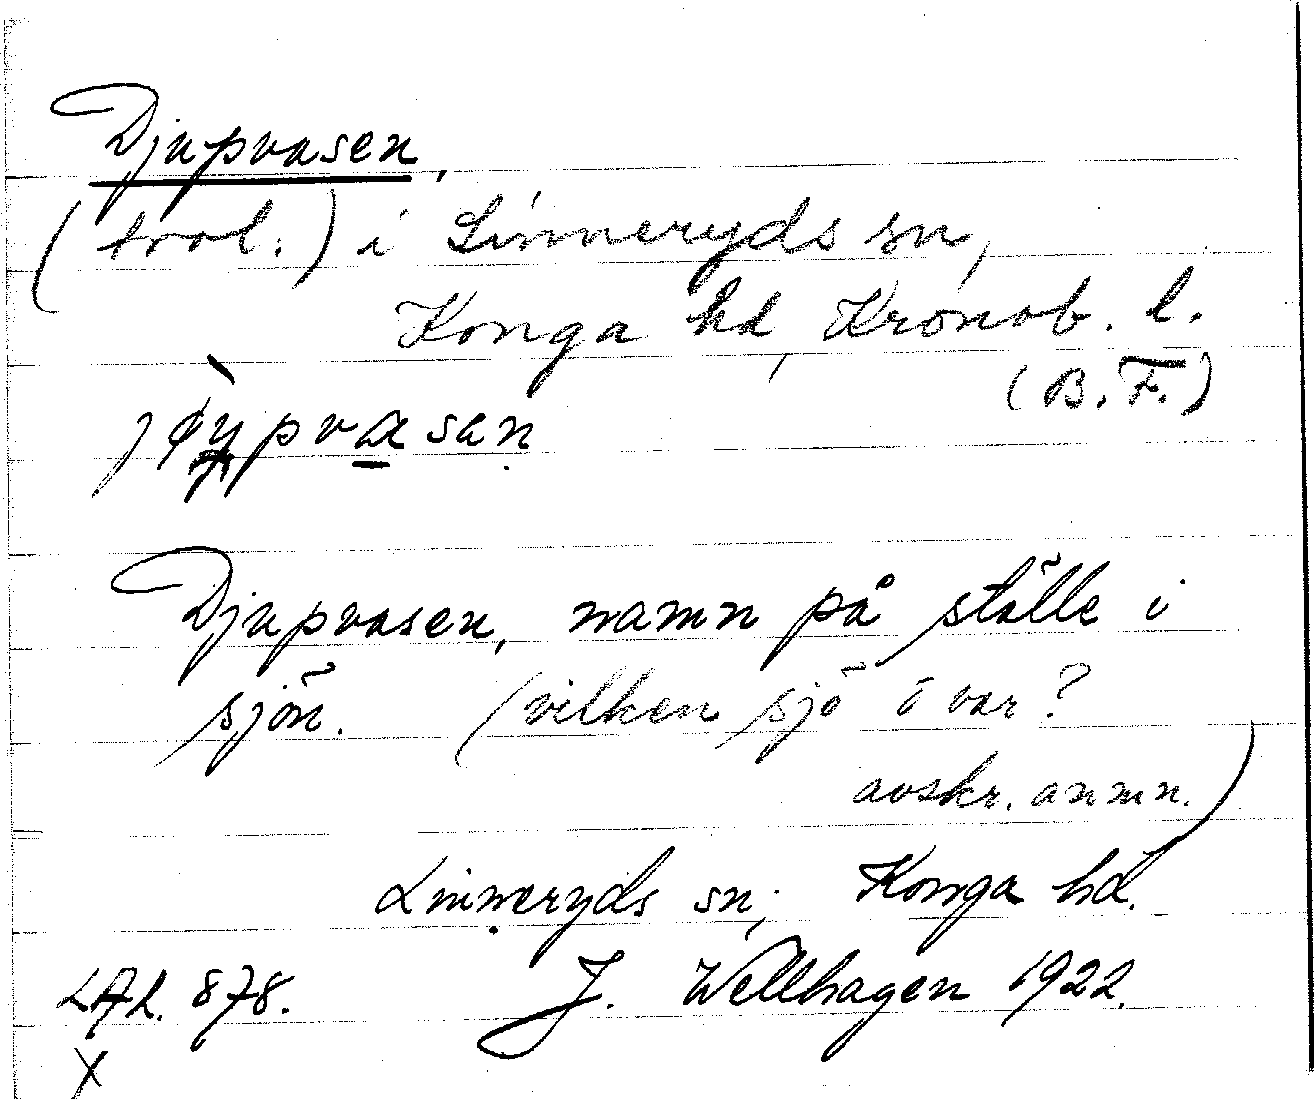 Djupvasen,
(trol.) i Linneryds sn,
Konga hd, Kronob. l.
(B.F.)
jøypvasan
Djupvasen, namn på ställe i
sjön. (vilken sjö õ var?
avskr. anmn.)
Linneryds sn; Konga hd.
LAL. 878. J. Wellhagen 1922.
X